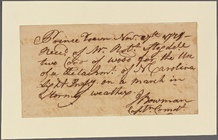 Prince Town Nov. 27th 1778
Recd. of Mr. Robt. Stogdale
two Cor of wood for the Use
of a Detachmt. of N Carolina
Light on a march in
Stormy weather
J Bowman
Captn. Comdt.